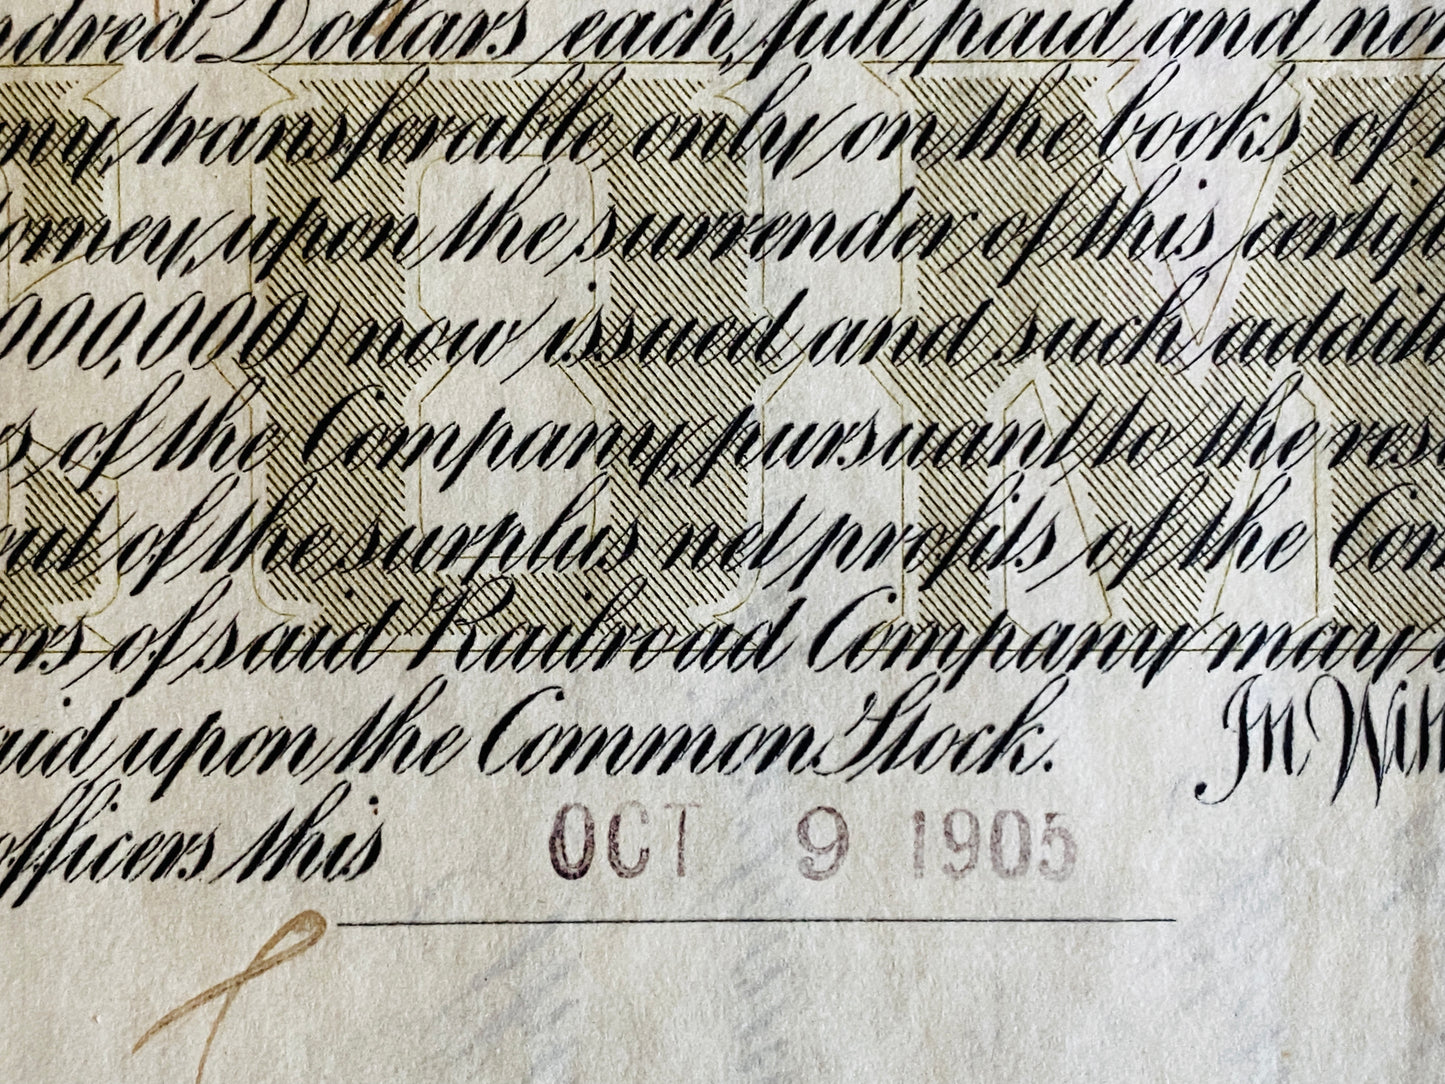 ndred Dollars each, full paid and non
any, transferable only on the books of
torney, upon the surrender of this certifi
000,000) now issued and such additi
s of the Company, pursuant to the res
out of the surplus net profits of the Com
ors of said Railroad Company may
aid upon the Common Stock. In Witn
officers this OCT 9 1905